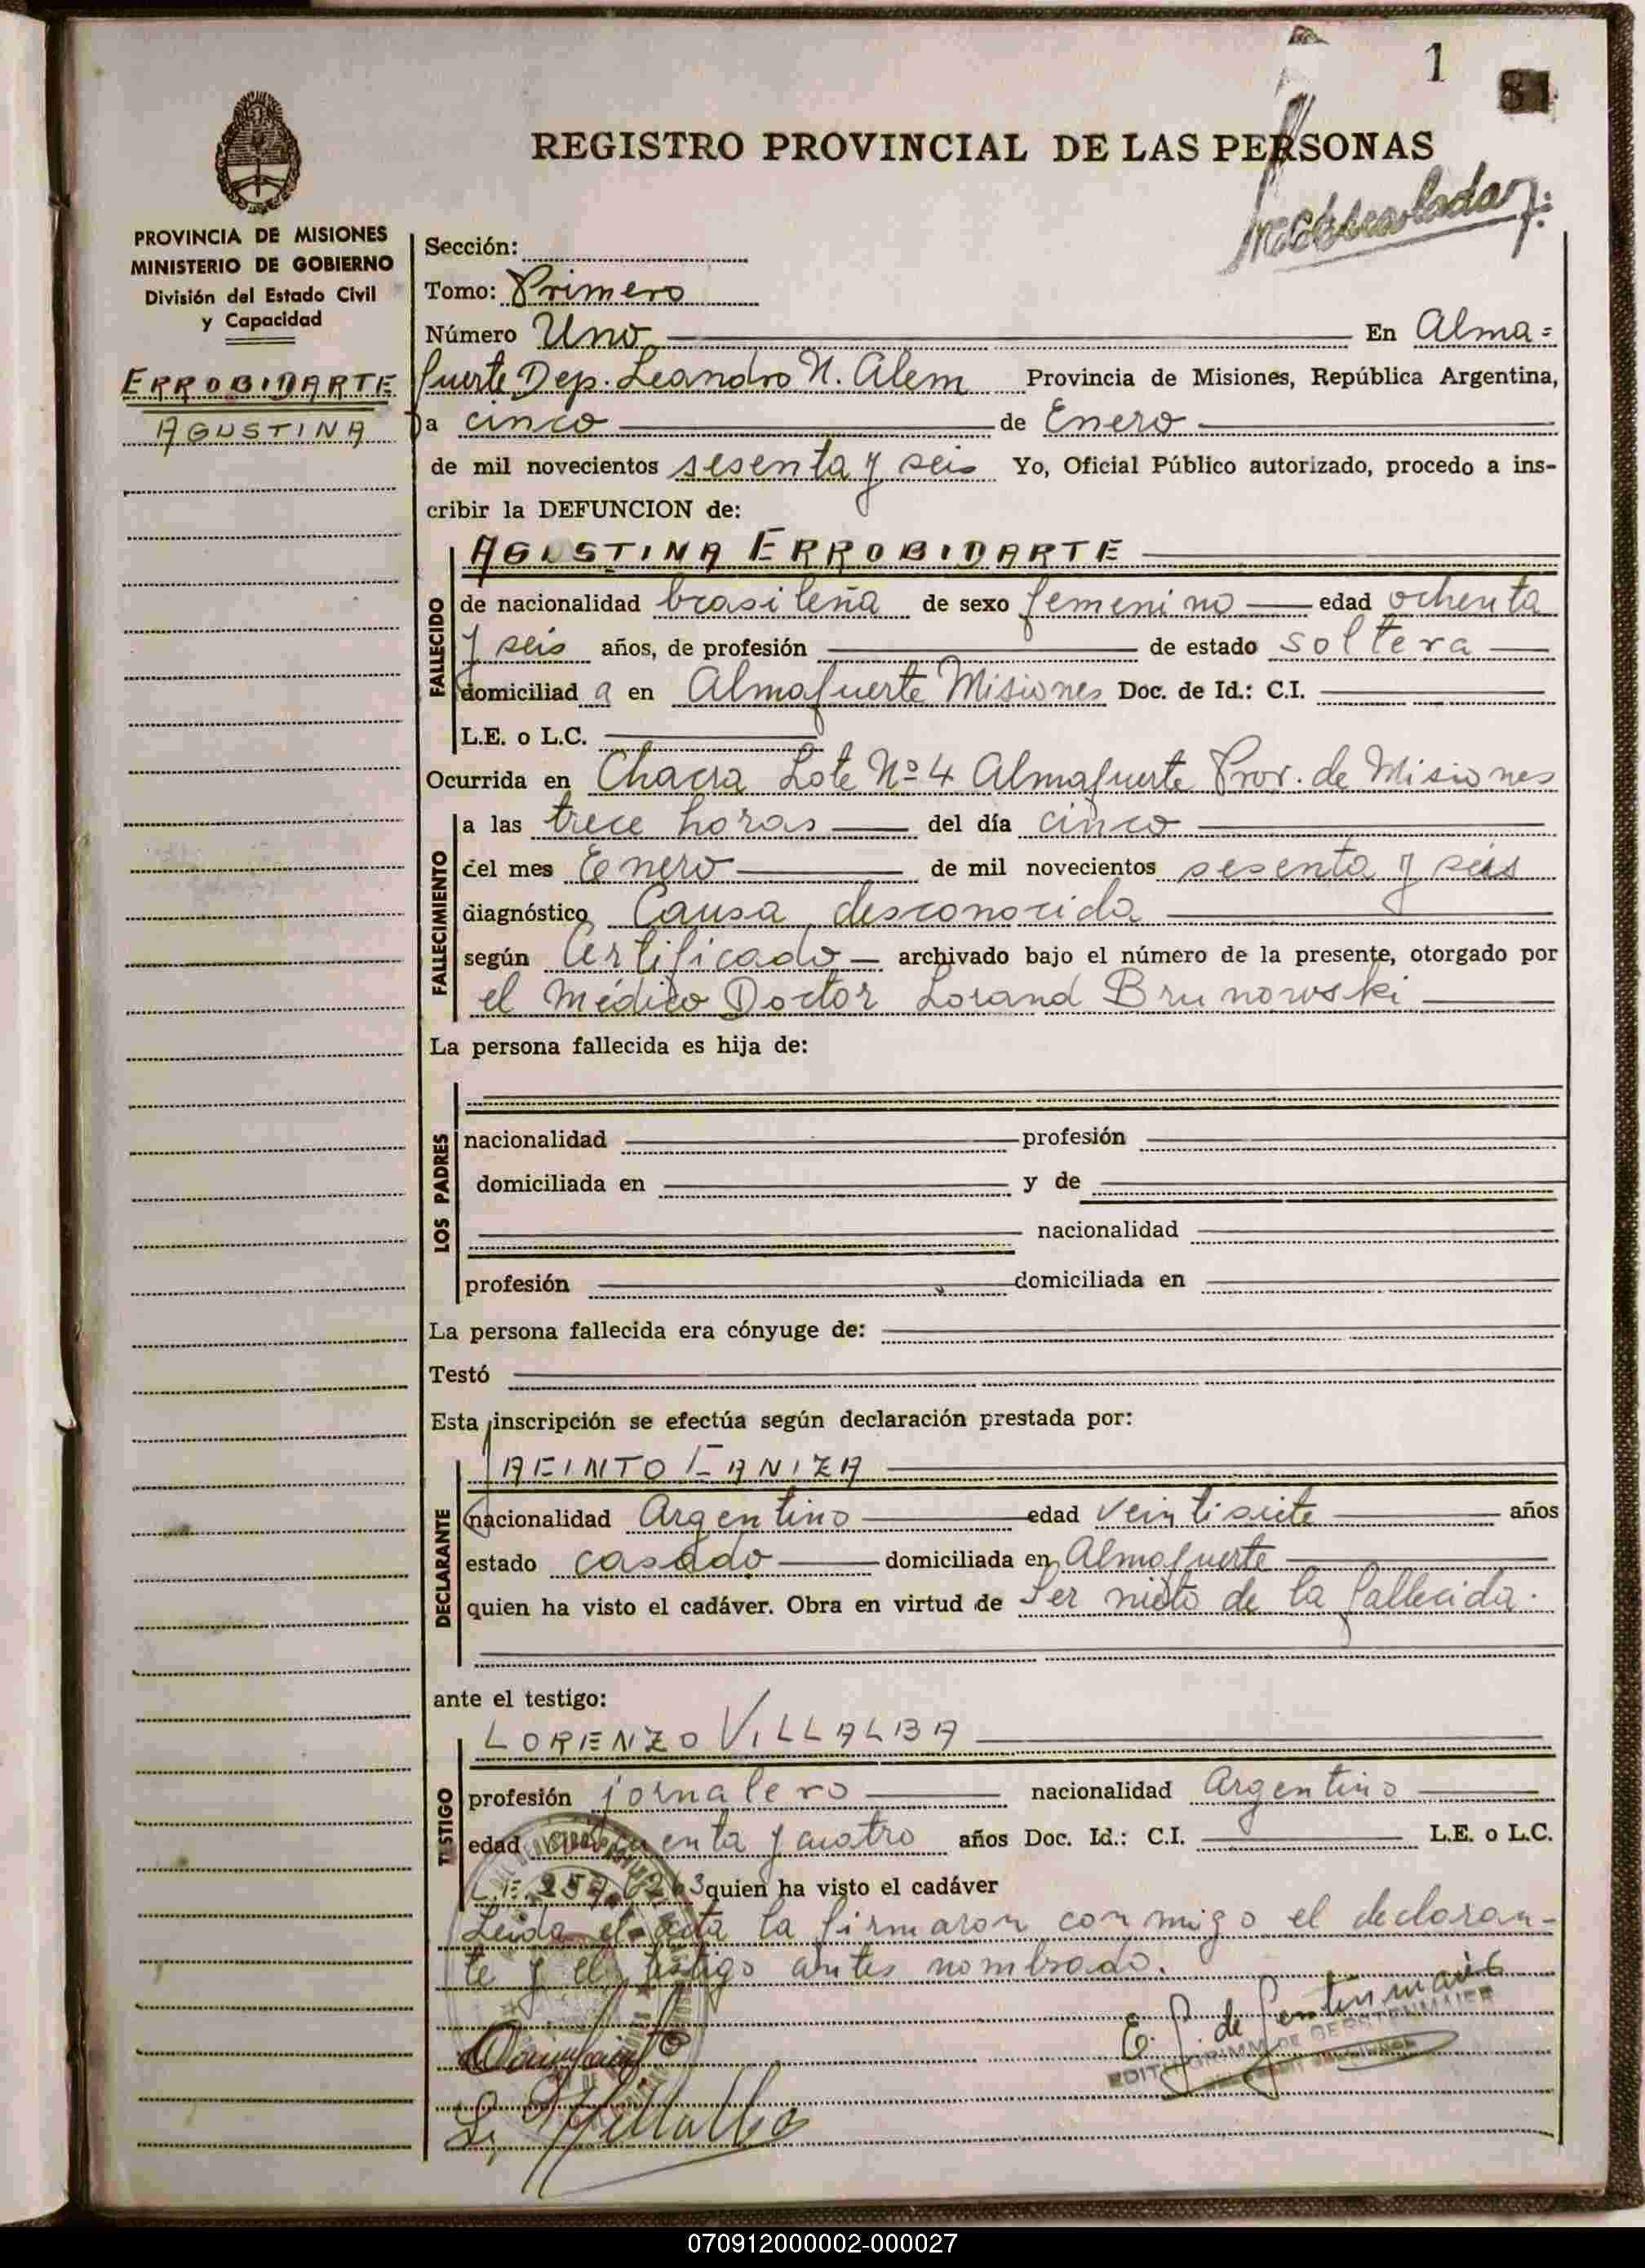 1
81
REGISTRO PROVINCIAL DE LAS PERSONAS
PROVINCIA DE MISIONES
MINISTERIO DE GOBIERNO
División del Estado Civil
y Capacidad
ERROBIDARTE
AGUSTINA
Sección:
Tomo: Primero
Número Uno En Alma=
fuerte Dep. Leandro N. Alem Provincia de Misiones, República Argentina,
a cinco de Enero
de mil novecientos sesenta y seis Yo, Oficial Público autorizado, procedo a ins-
cribir la DEFUNCION de:
AGUSTINA ERROBIDARTE
FALLECIDO
de nacionalidad brasileña de sexo femenino edad ochenta
y seis años, de profesión de estado soltera
domiciliad a en Almafuerte Misiones Doc. de Id.: C.I.
L.E. o L.C.
Ocurrida en Chacra Lote Nº 4 Almafuerte Prov. de Misiones
FALLECIMIENTO
a las trece horas del día cinco
del mes Enero de mil novecientos sesenta y seis
diagnóstico Causa desconocida
según Certificado archivado bajo el número de la presente, otorgado por
el Médico Doctor Lorand Brunowski
La persona fallecida es hija de:
LOS PADRES
nacionalidad profesión
domiciliada en y de
nacionalidad
profesión domiciliada en
La persona fallecida era cónyuge de:
Testó
Esta inscripción se efectúa según declaración prestada por:
DECLARANTE
nacionalidad Argentino edad veintisiete años
estado casado domiciliada en Almafuerte
quien ha visto el cadáver. Obra en virtud de Ser nieto de la fallecida.
ante el testigo:
LORENZO VILLALBA
TESTIGO
profesión jornalero nacionalidad Argentino
edad cincuenta y cuatro años Doc. Id.: C.I. L.E. o L.C.
L.E. quien ha visto el cadáver
Leida el acta la firmaron conmigo el declaran-
te y el testigo antes nombrado.
E. G. de Gerstenmaier
EDITH GRIMM DE GERSTENMAIER
L. Villalba
070912000002-000027